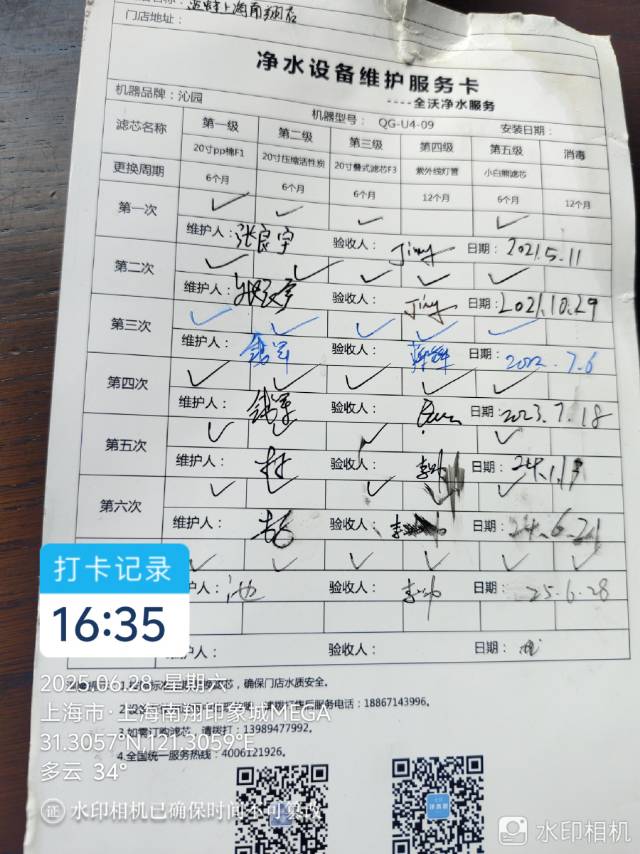 门店地址：
净水设备维护服务卡
----全沃净水服务
机器品牌：沁园 机器型号： QG-U4-09 安装日期：
滤芯名称 第一级 第二级 第三级 第四级 第五级 消毒
20寸pp棉F1 20寸压缩活性炭 20寸叠式滤芯F3 紫外线灯管 小白熊滤芯
更换周期 6个月 6个月 6个月 12个月 6个月 12个月
第一次 ✓ ✓ ✓ ✓
维护人：张良宇 验收人： Jimy 日期：2021.5.11
第二次 ✓ ✓ ✓ ✓ ✓
维护人： 验收人： Jimy 日期：2021.10.29
第三次 ✓ ✓ ✓ ✓ ✓
维护人： 验收人： 日期：2022.7.6
第四次 ✓ ✓ ✓ ✓ ✓
维护人： 验收人： 日期：2023.7.18
第五次 ✓ ✓ ✓ ✓
维护人： 验收人： 日期：24.1.13
第六次 ✓ ✓ ✓ ✓ ✓
维护人： 验收人： 日期：24.6.21
✓ ✓ ✓ ✓ ✓ ✓
护人：池 验收人： 日期：25.6.28
护人： 验收人： 日期：
打卡记录
16:35
滤芯，确保门店水质安全。
2025.06.28 星期六
服务电话：18867143996。
上海市·上海南翔印象城MEGA
3.如需订购滤芯，请拨打：13989477992。
31.3057°N,121.3059°E
4.全国统一服务热线：4006121926。
多云 34°
证 水印相机已确保时间不可篡改
水印相机